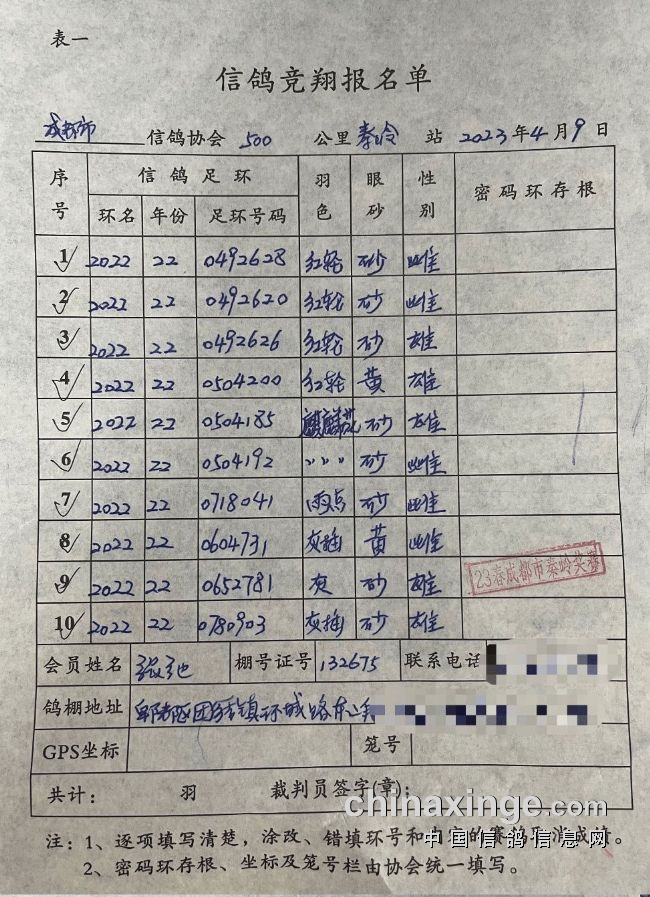 表一
信鸽竞翔报名单
成都市 信鸽协会 500 公里 秦岭 站 2023 年 4 月 9 日
序号 信鸽足环 羽色 眼砂 性别 密码环存根
环名 年份 足环号码
1 2022 22 0492628 红轮 砂 雌
2 2022 22 0492620 红轮 砂 雌
3 2022 22 0492626 红轮 砂 雄
4 2022 22 0504200 红轮 黄 雄
5 2022 22 0504185 麒麟花 砂 雄
6 2022 22 0504192 〃 〃 砂 雌
7 2022 22 0718041 雨点 砂 雌
8 2022 22 0604731 灰插 黄 雌
9 2022 22 0652781 灰 砂 雄
23春成都市秦岭奖赛
10 2022 22 0780903 灰插 砂 雄
会员姓名 张弛 棚号证号 132675 联系电话
鸽棚地址 郫都区团结镇环城路东
GPS坐标 笼号
共计： 羽 裁判员签字(章)：
chinaxinge.com
注：1、逐项填写清楚，涂改、错填环号和
中国信鸽信息网
的赛鸽取消成绩。
2、密码环存根、坐标及笼号栏由协会统一填写。